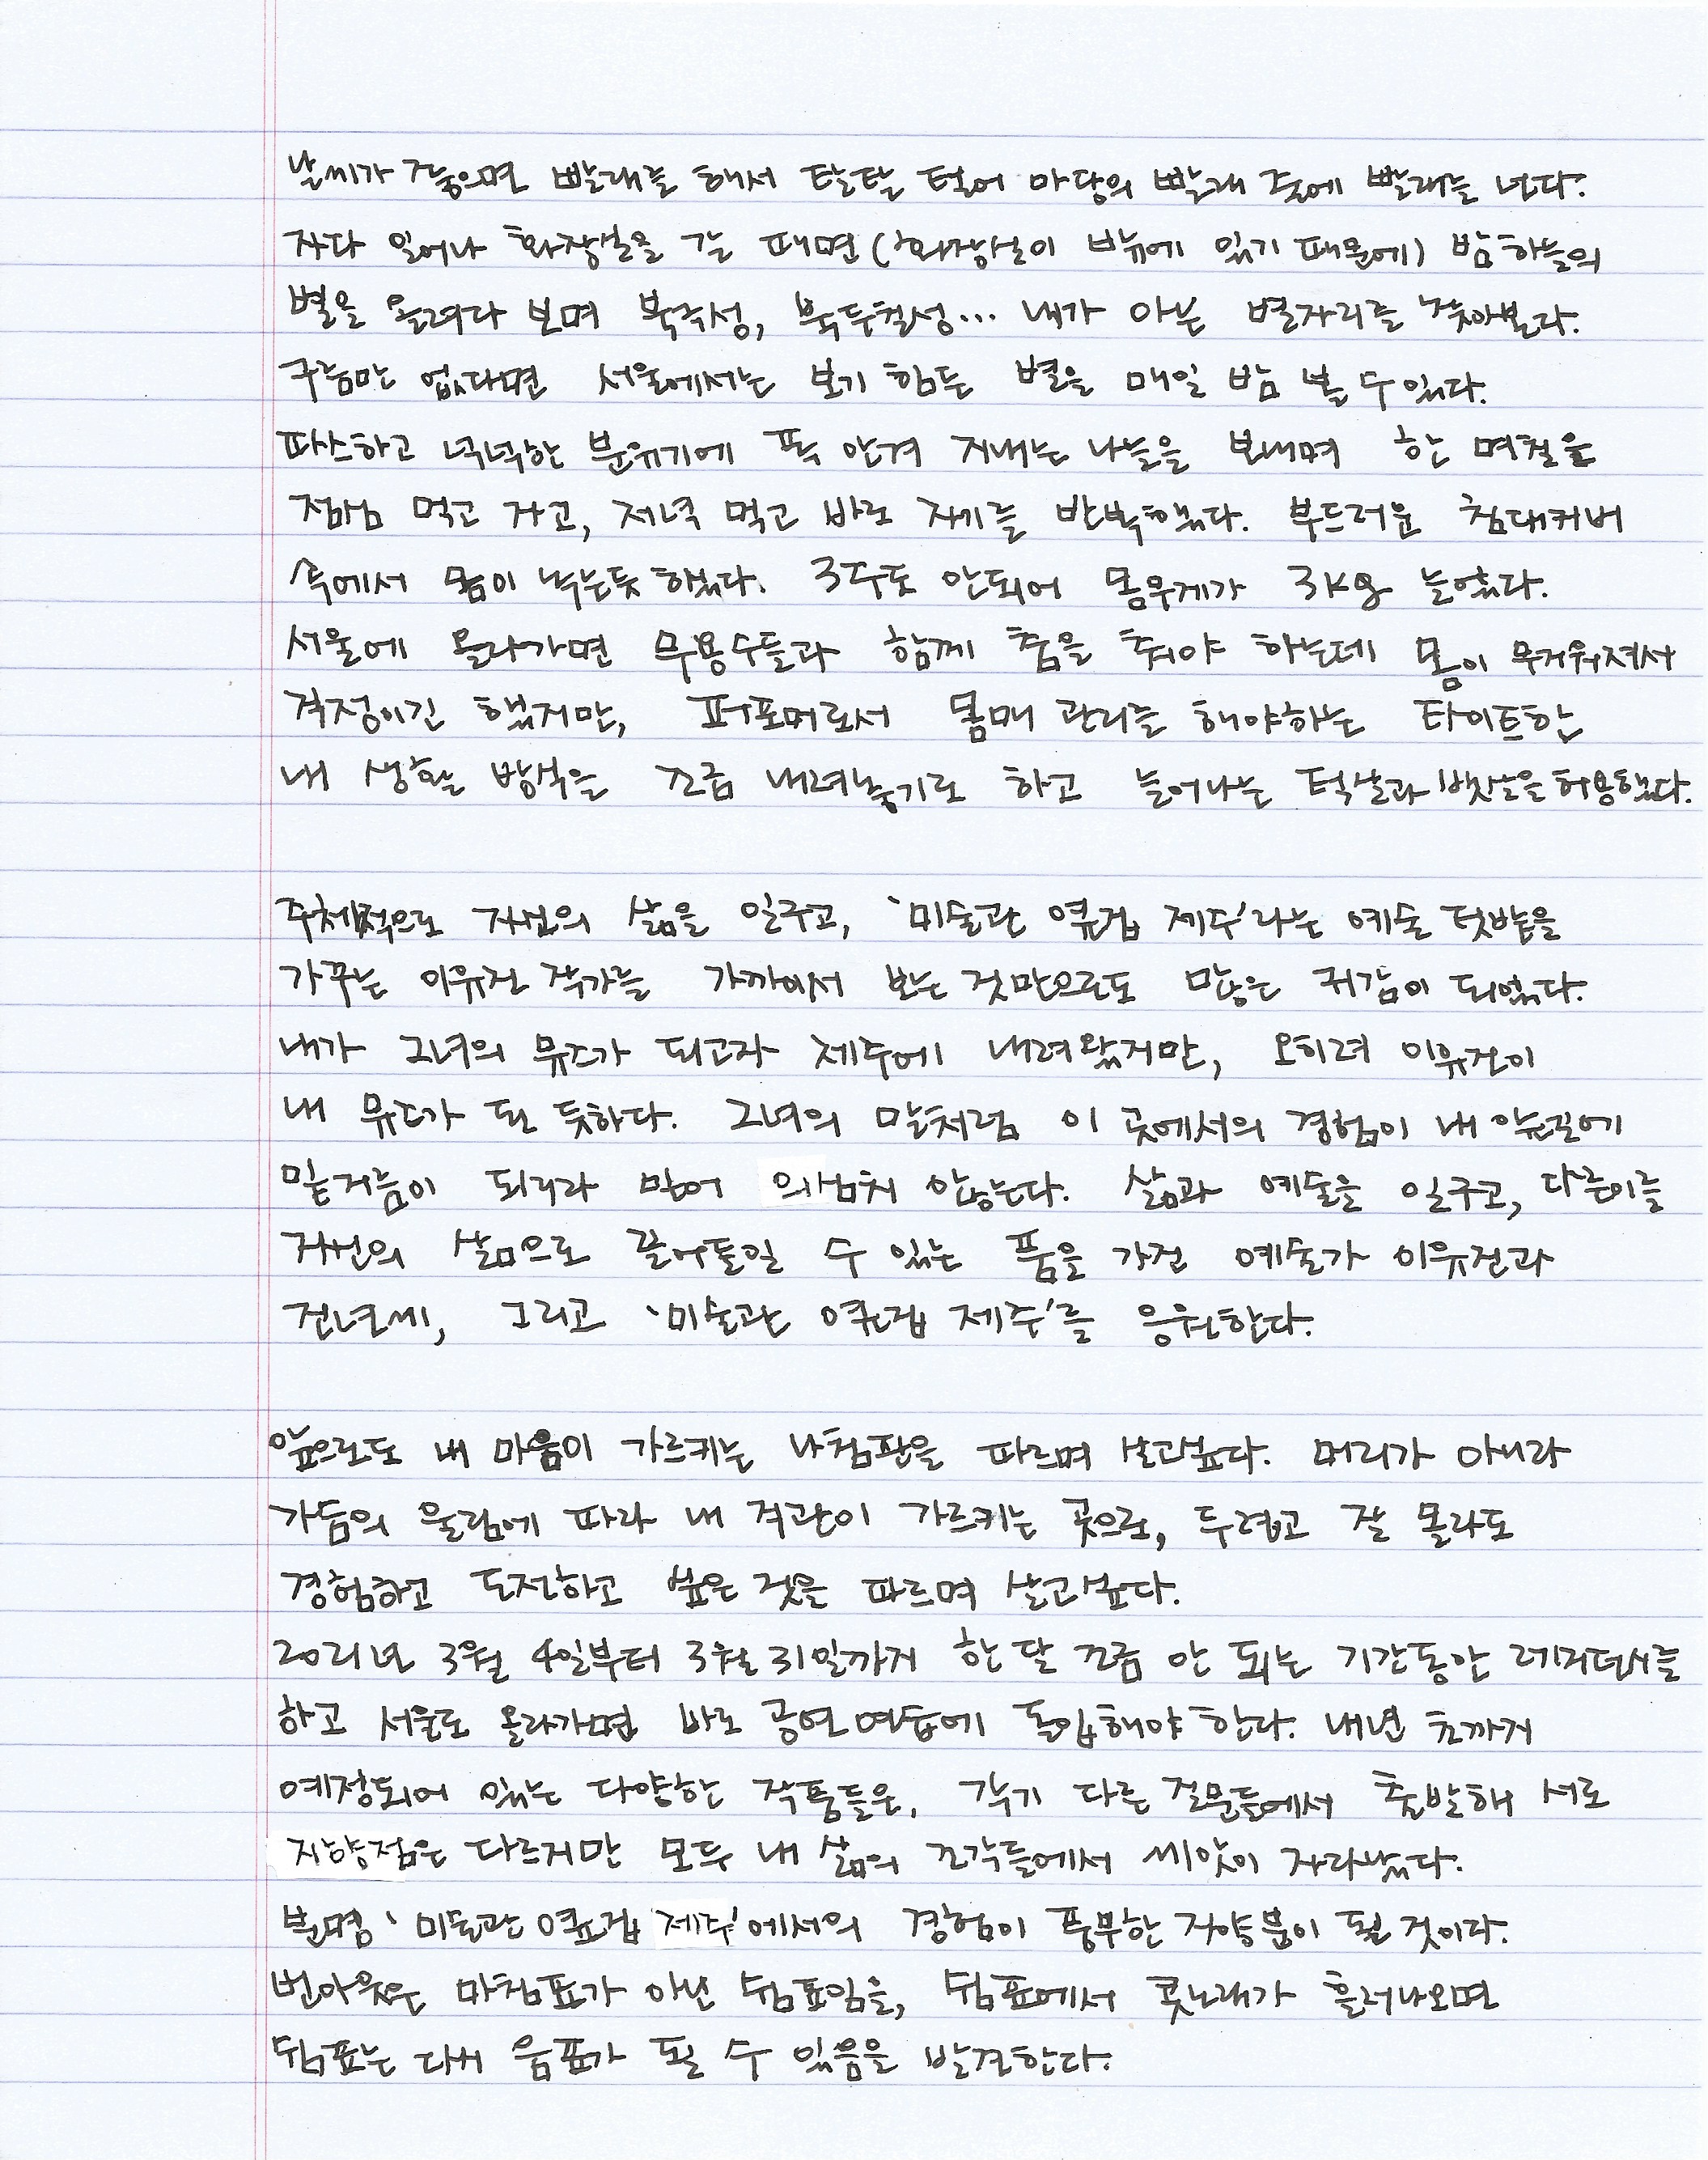 날씨가 좋으면 빨래를 해서 탈탈 털어 마당의 빨래 줄에 빨래를 넌다.
자다 일어나 화장실을 갈 때면 (화장실이 밖에 있기 때문에) 밤하늘의
별을 올려다 보며 북극성, 북두칠성... 내가 아는 별자리를 찾아본다.
구름만 없다면 서울에서는 보기 힘든 별을 매일 밤 볼 수 있다.
따스하고 넉넉한 분위기에 폭 안겨 지내는 나날을 보내며 한 며칠을
점심 먹고 자고, 저녁 먹고 바로 자기를 반복했다. 부드러운 침대커버
속에서 몸이 녹는듯 했다. 3주도 안되어 몸무게가 3kg 늘었다.
서울에 올라가면 무용수들과 함께 춤을 춰야 하는데 몸이 무거워져서
걱정이긴 했지만, 퍼포머로서 몸매 관리를 해야하는 타이트한
내 생활 방식을 조금 내려놓기로 하고 늘어나는 턱살과 뱃살을 허용했다.
주체적으로 자신의 삶을 일구고, '미술관 옆집 제주'라는 예술 텃밭을
가꾸는 이유진 작가를 가까이서 보는 것만으로도 많은 귀감이 되었다.
내가 그녀의 뮤즈가 되고자 제주에 내려왔지만, 오히려 이유진이
내 뮤즈가 된 듯하다. 그녀의 말처럼 이 곳에서의 경험이 내 안무에
밑거름이 되리라 믿어 의심치 않는다. 삶과 예술을 일구고, 다른이를
자신의 삶으로 끌어들일 수 있는 품을 가진 예술가 이유진과
건년씨, 그리고 '미술관 옆집 제주'를 응원한다.
앞으로도 내 마음이 가르키는 나침판을 따르며 살고싶다. 머리가 아니라
가슴의 울림에 따라 내 직관이 가르키는 곳으로, 두렵고 잘 몰라도
경험하고 도전하고 싶은 것을 따르며 살고싶다.
2021년 3월 4일부터 3월 31일까지 한 달 조금 안 되는 기간동안 레지던시를
하고 서울로 올라가면 바로 공연 연습에 돌입해야 한다. 내년 초까지
예정되어 있는 다양한 작품들은, 각기 다른 질문들에서 출발해 서로
지향점은 다르지만 모두 내 삶의 조각들에서 씨앗이 자라났다.
분명 '미술관 옆집 제주'에서의 경험이 풍부한 자양분이 될 것이다.
번아웃은 마침표가 아닌 쉼표임을, 쉼표에서 콧노래가 흘러나오면
쉼표는 다시 음표가 될 수 있음을 발견한다.